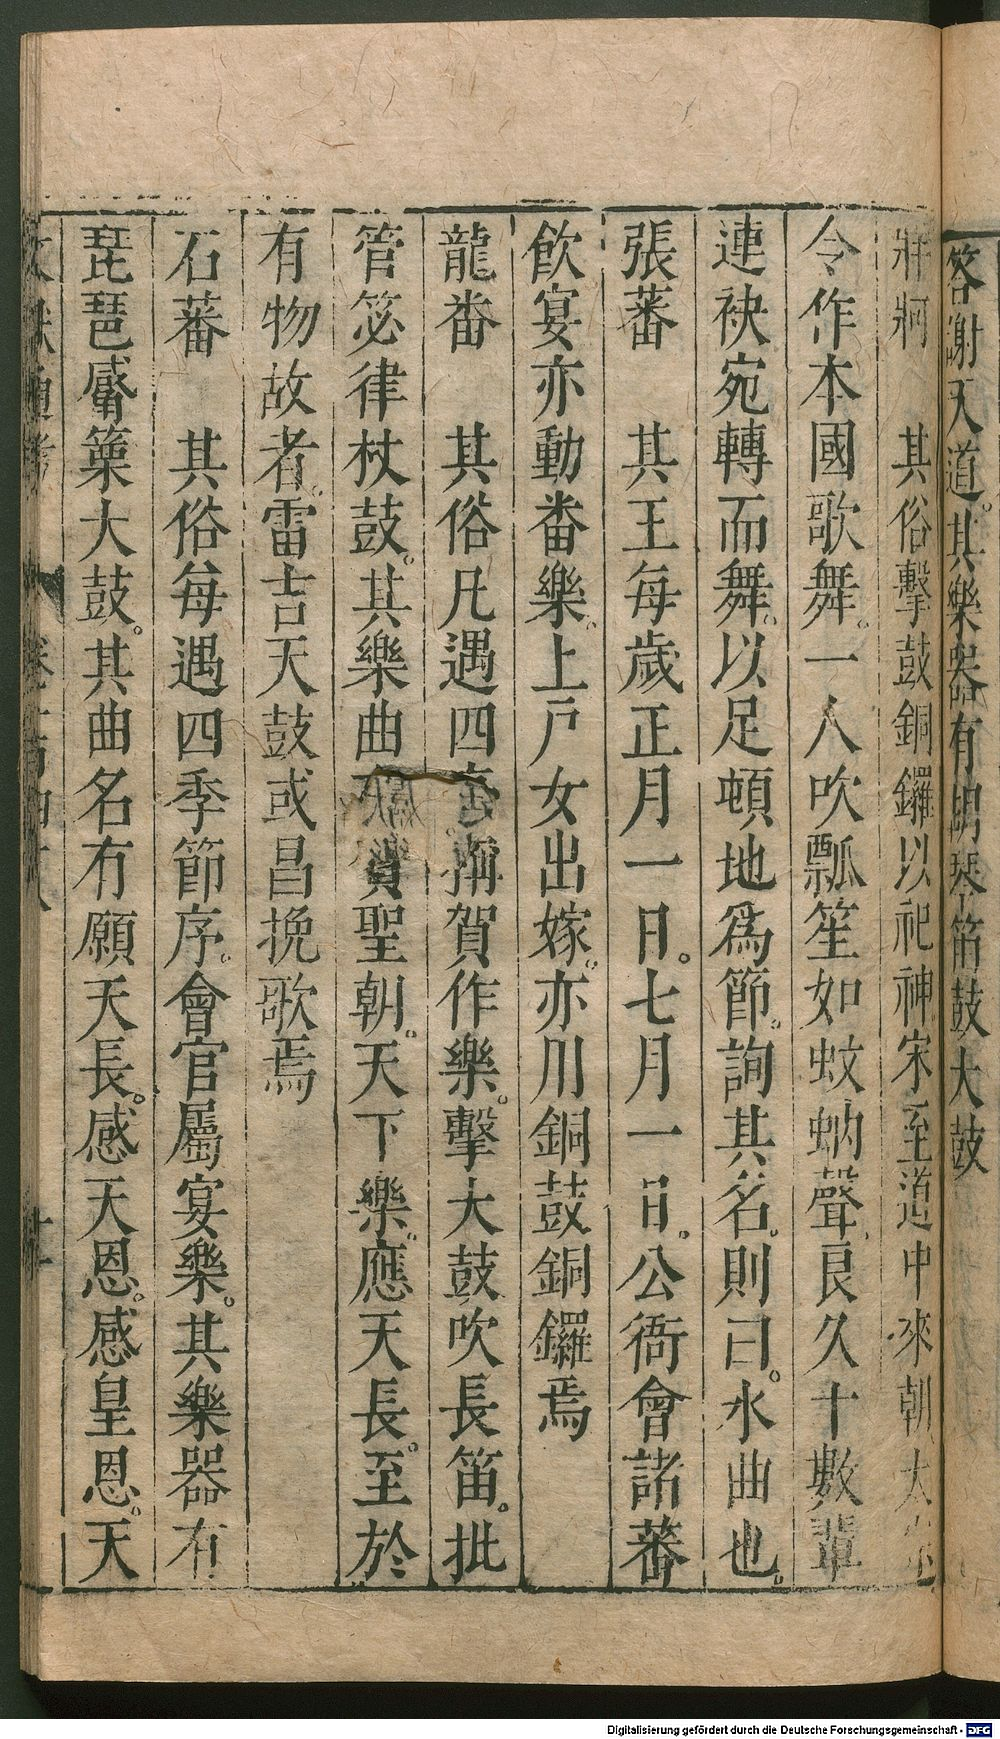 答謝天道其樂器有胡琴笛鼓大鼓
牂牁　其俗擊鼓銅鑼以祀神宋至道中來朝太
令作本國歌舞一人吹瓢笙如蚊蚋聲良久十數輩
連袂宛轉而舞以足頓地爲節詢其名則曰水曲也
張蕃　其王每歲正月一日七月一日公衙會諸蕃
飲宴亦動畨樂上戸女出嫁亦川銅鼓銅鑼焉
龍畨　其俗凡遇四序稱賀作樂擊大鼓吹長笛批
管篳律杖鼓其樂曲賀聖朝天下樂應天長至於
有物故者雷吉天鼓或昌挽歌焉
石蕃　其俗每遇四季節序會官屬宴樂其樂器有
琵琶觱篥大鼓其曲名有願天長感天恩感皇恩天
文獻通考
Digitalisierung gefördert durch die Deutsche Forschungsgemeinschaft - DFG